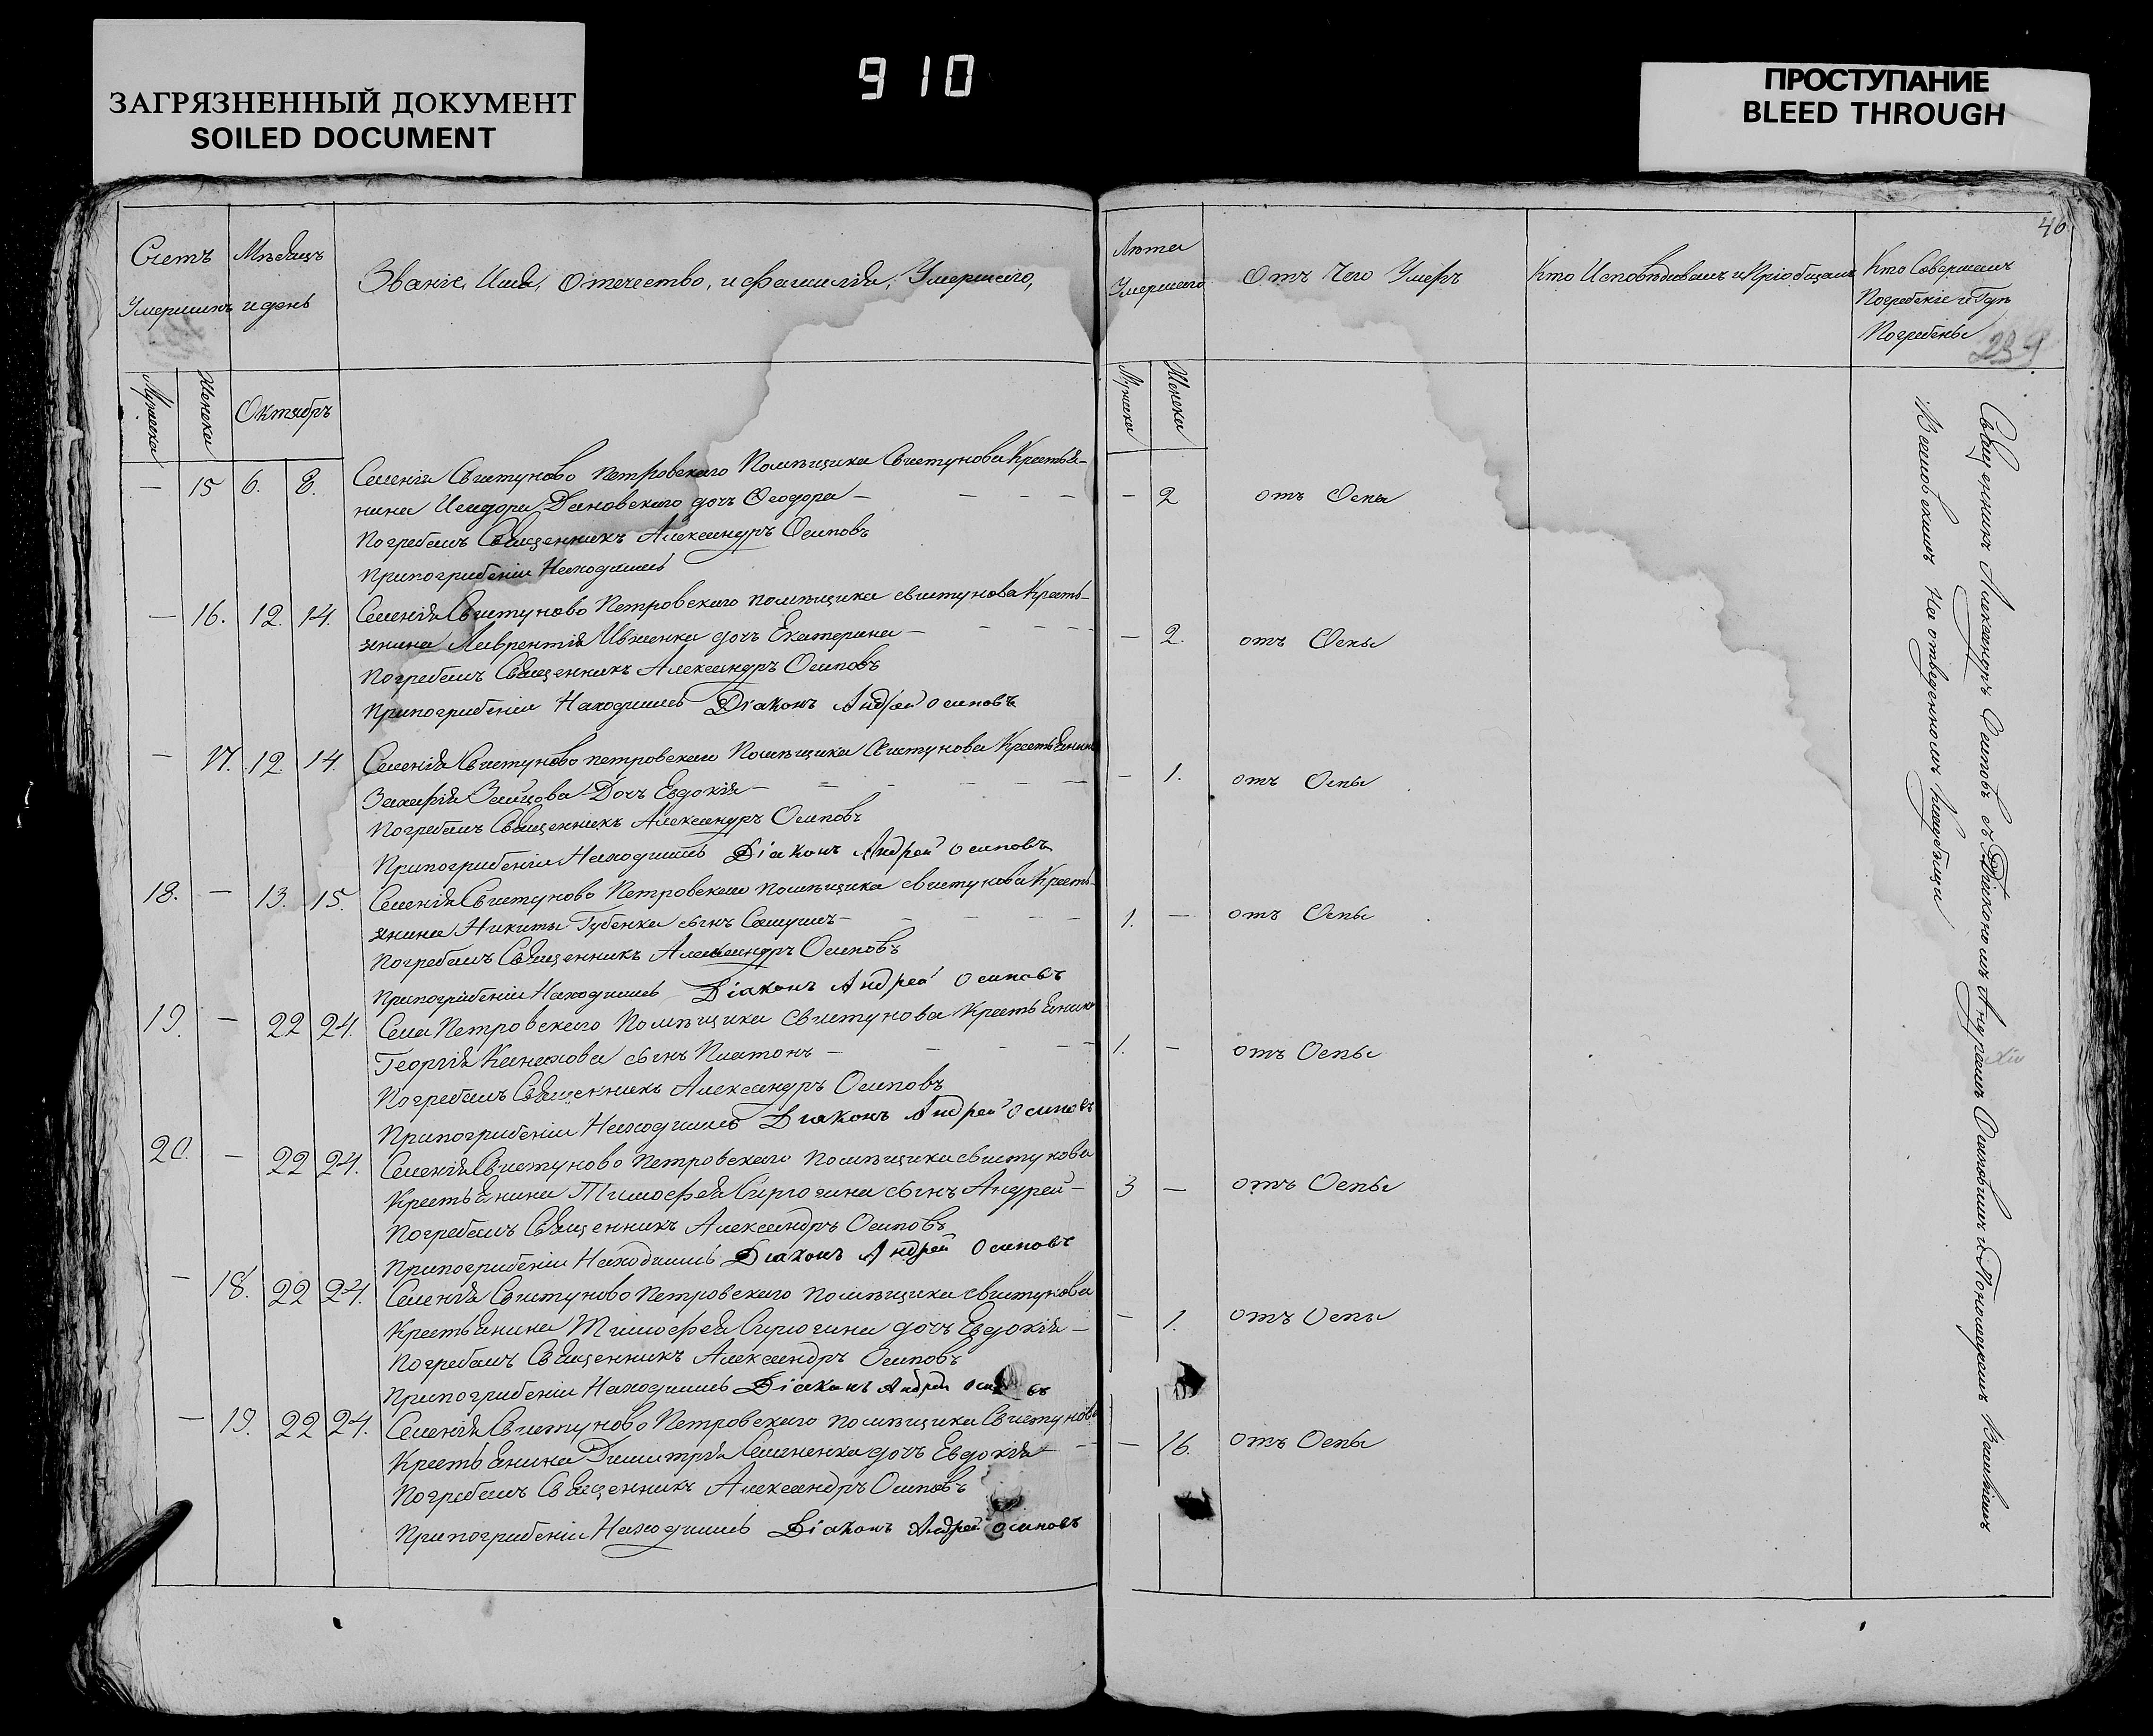 ЗАГРЯЗНЕННЫЙ ДОКУМЕНТ
SOILED DOCUMENT
910
ПРОСТУПАНИЕ
BLEED THROUGH
40
Счетъ Умершихъ
Мѣсяцъ и день
Званіе, Имя, Отечество, и фамилія, Умершаго,
Лѣта Умершаго
Отъ Чего Умеръ
Кто Исповѣдовалъ и Пріобщалъ
Кто Совершалъ
Погребеніе и Гдѣ
Погребены
239
Мужеска Женска Октябръ
Мужеска Женска
— 15 6. 8. Селенія Свистуново Петровскаго Помѣщика Свистунова Крестья-
нина Исидора Дановскаго дочь Феодора — — 2 отъ Оспы
Погребалъ Священникъ Александръ Осиповъ
Припогрибеніи Находились
— 16. 12. 14. Селенія Свистуново Петровскаго помѣщика свистунова Кресть-
янина Лаврентія Ивженка дочь Екатерина — — 2. отъ Оспы
Погребалъ Священникъ Александръ Осиповъ
Припогрибеніи Находились Діаконъ Андрей осиповъ
— 17. 12. 14. Селенія Свистуново петровскаго Помѣщика Свистунова Крестьянина
Захарія Зайцова Дочь Евдокія — — 1. отъ Оспы
Погребалъ Священникъ Александръ Осиповъ
Припогрибеніи Находились Діаконъ Андрей осиповъ
18. — 13. 15. Селенія Свистуново Петровскаго помѣщика свистунова Кресть-
янина Никиты Губенка сынъ Самуилъ — 1. — отъ Оспы
Погребалъ Священникъ Александръ Осиповъ
Припогрибеніи Находились Діаконъ Андрей осиповъ
19. — 22 24. Села Петровскаго Помѣщика Свистунова Крестьянина
Георгія Канахова сынъ Платонъ — 1. — отъ Оспы
Погребалъ Священникъ Александръ Осиповъ
Припогрибеніи Находились Діаконъ Андрей осиповъ
20. — 22 24. Селенія Свистуново Петровскаго помѣщика свистунова
Крестьянина Тимофея Сирюгина сынъ Андрей — 3 — отъ Оспы
Погребалъ Священникъ Александръ Осиповъ
Припогрибеніи Находились Діаконъ Андрей осиповъ
— 18. 22 24. Селенія Свистуново Петровскаго помѣщика свистунова
Крестьянина Тимофея Сирюгина дочь Евдокія — — 1. отъ Оспы
Погребалъ Священникъ Александръ Осиповъ
Припогрибеніи Находились Діаконъ Андрей
— 19. 22 24. Селенія Свистуново Петровскаго помѣщика Свистунова
Крестьянина Димитрія Семененка дочь Евдокія — — 16. отъ Оспы
Погребалъ Священникъ Александръ Осиповъ
Припогрибеніи Находились Діаконъ Андрей осиповъ
Священникъ Александръ Осиповъ съ Діакономъ Андреемъ Осиповымъ и Пономаремъ
на отведенномъ кладбищи